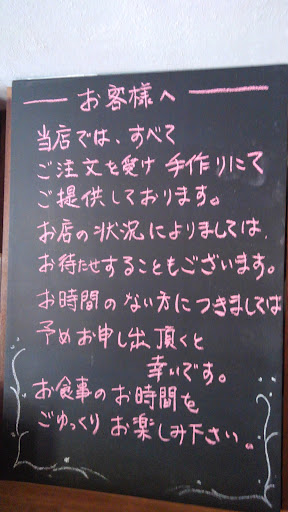 お客様へ
当店では、すべて
ご注文を受け手作りにて
ご提供しております。
お店の状況によりましては、
お待たせすることもございます。
お時間のない方につきましては
予めお申し出頂くと
幸いです。
お食事のお時間を
ごゆっくりお楽しみ下さい。